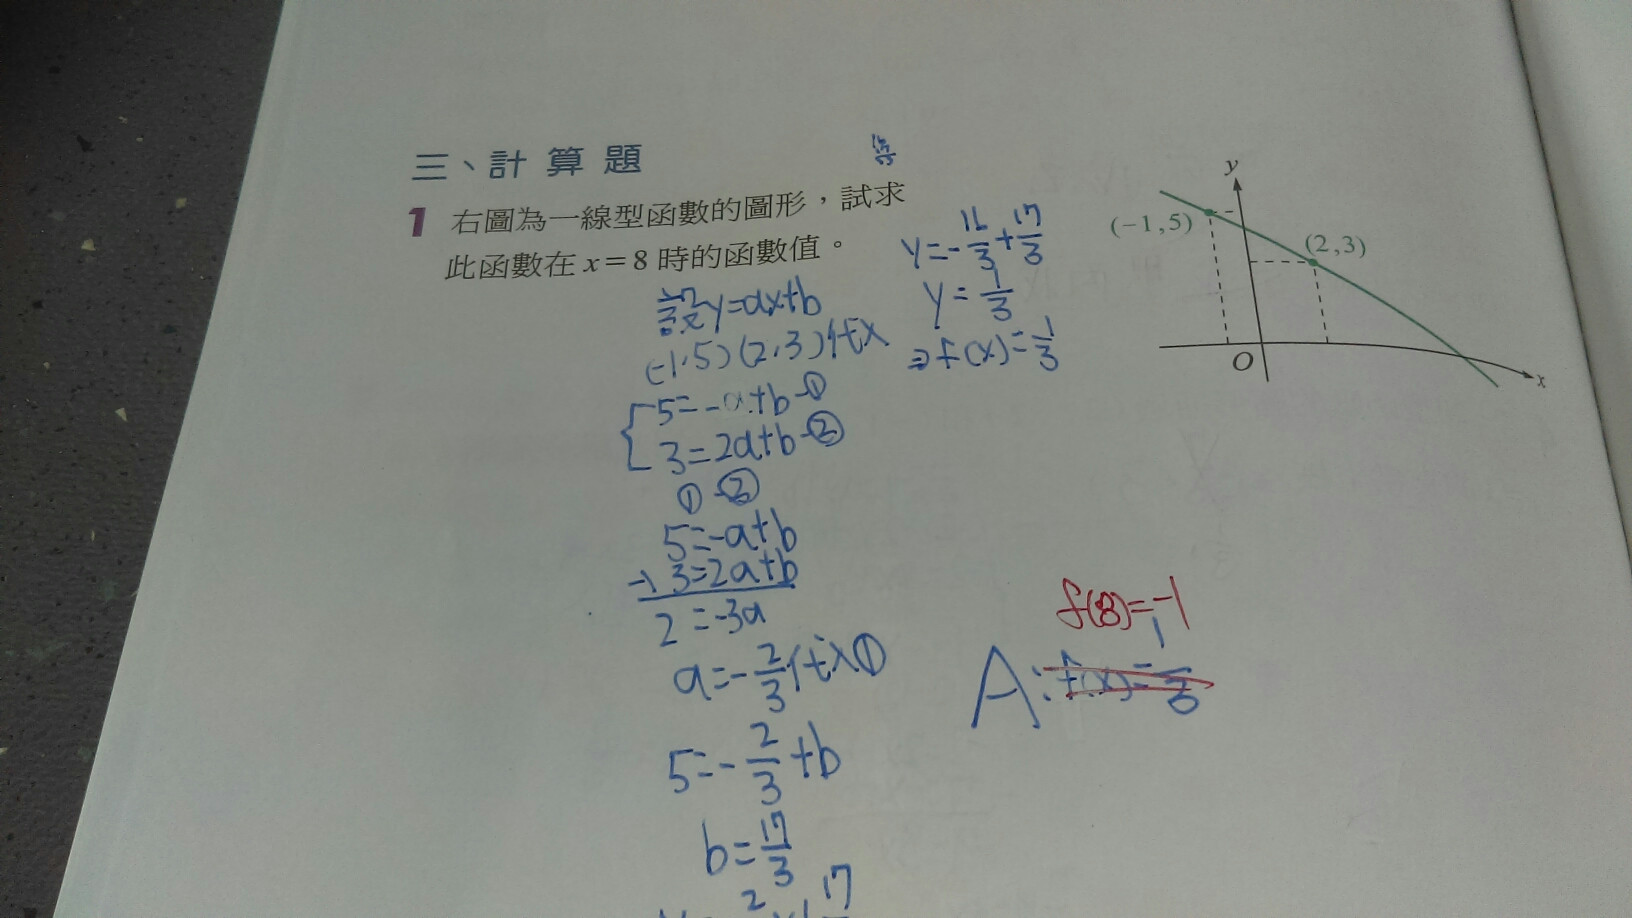 三、計算題
1 右圖為一線型函數的圖形，試求
此函數在 x=8 時的函數值。
設y=ax+b
(-1,5)(2,3)代入
5=-a+b-①
3=2a+b-②
①-②
5=-a+b
-) 3=2a+b
2=-3a
a=-2/3代入①
5=-2/3+b
b=17/3
y=-16/3+17/3
y=1/3
⇒f(x)=1/3
y
(-1,5)
(2,3)
O
x
f(8)=-1
A:f(x)=1/3